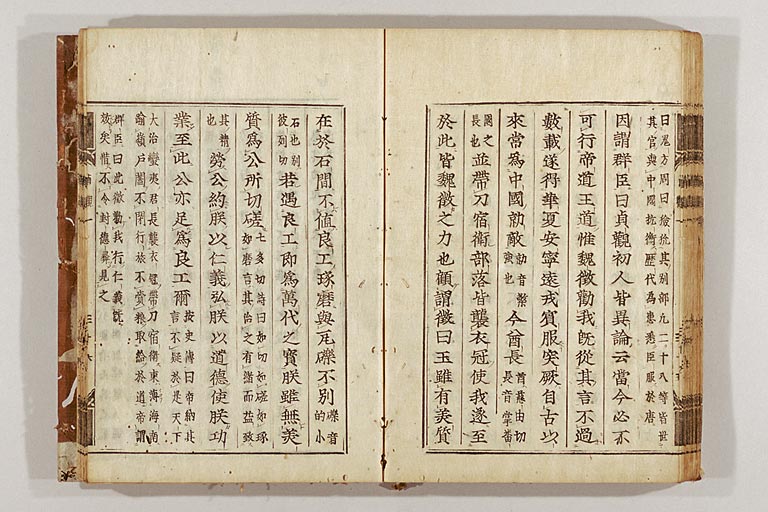 曰凡方周曰 嶮抗其別部凡二十八等皆世
其官與中國抗衡歷代為患悉臣服於唐
因謂群臣曰貞觀初人皆異論云當今必不
可行帝道王道惟魏徵勸我旣從其言不過
數載遂得華夏安寧遠戎賓服突厥自古以
來當爲中國勍敵 勍音檠
強也 今酋長 酋慈由切
長音掌蕃
國之
長也 並帶刀宿衛部落皆襲衣冠使我遂至
於此皆魏徵之力也顧謂徵曰玉雖有美質
在於石間不值良工琢磨與瓦礫不別 礫音
的小
石也別
彼列切 若遇良工即爲萬代之寶朕雖無美
質爲公所切磋 七多切詩曰如切如磋如琢
如磨言其治之有緒而益致
其精
也 勞公約朕以仁義弘朕以道德使朕功
業至此公亦足爲良工爾 按史傳曰帝納其
言不疑於是天下
大治蠻夷君長襲衣冠帶刀宿衛東薄海南
踰嶺戶闔不閉行旅不齎糧取給於道帝謂
群臣曰此徵勸我行仁義旣
效矣惜不令封德彝見之